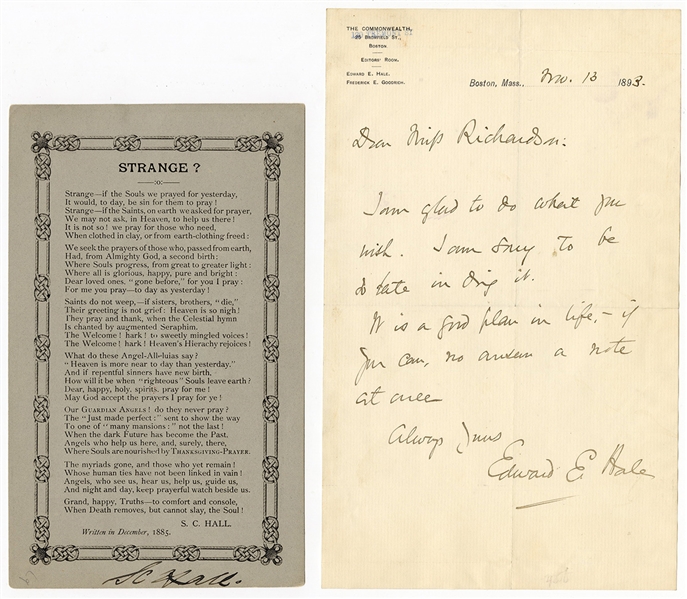 STRANGE ?
Strange—if the Souls we prayed for yesterday,
It would, to day, be sin for them to pray !
Strange—if the Saints, on earth we asked for prayer,
We may not ask, in Heaven, to help us there !
It is not so ! we pray for those who need,
When clothed in clay, or from earth-clothing freed :
We seek the prayers of those who, passed from earth,
Had, from Almighty God, a second birth :
Where Souls progress, from great to greater light :
Where all is glorious, happy, pure and bright :
Dear loved ones. "gone before," for you I pray :
For me you pray—to day as yesterday !
Saints do not weep,—if sisters, brothers, "die,"
Their greeting is not grief : Heaven is so nigh !
They pray and thank, when the Celestial hymn
Is chanted by augmented Seraphim.
The Welcome ! hark ! to sweetly mingled voices !
The Welcome ! hark ! Heaven's Hierachy rejoices !
What do these Angel-All-luias say ?
"Heaven is more near to day than yesterday."
And if repentful sinners have new birth,
How will it be when "righteous" Souls leave earth ?
Dear, happy, holy, spirits. pray for me !
May God accept the prayers I pray for ye !
Our GUARDIAN ANGELS ! do they never pray ?
The "Just made perfect :" sent to show the way
To one of "many mansions :" not the last !
When the dark Future has become the Past,
Angels who help us here, and, surely, there,
Where Souls are nourished by THANKSGIVING-PRAYER.
The myriads gone, and those who yet remain !
Whose human ties have not been linked in vain !
Angels, who see us, hear us, help us, guide us,
And night and day, keep prayerful watch beside us.
Grand, happy, Truths—to comfort and console,
When Death removes, but cannot slay, the Soul !
S. C. HALL.
Written in December, 1885.
S C Hall.
THE COMMONWEALTH,
25 BROMFIELD ST.,
BOSTON
EDITORS' ROOM.
EDWARD E. HALE.
FREDERICK E. GOODRICH.
Boston, Mass., Nov. 13 1893.
Dear Miss Richardson:
I am glad to do what you
wish. I am sorry to be
so late in doing it.
It is a good plan in life,— if
you can, to answer a note
at once
Always yours
Edward E. Hale